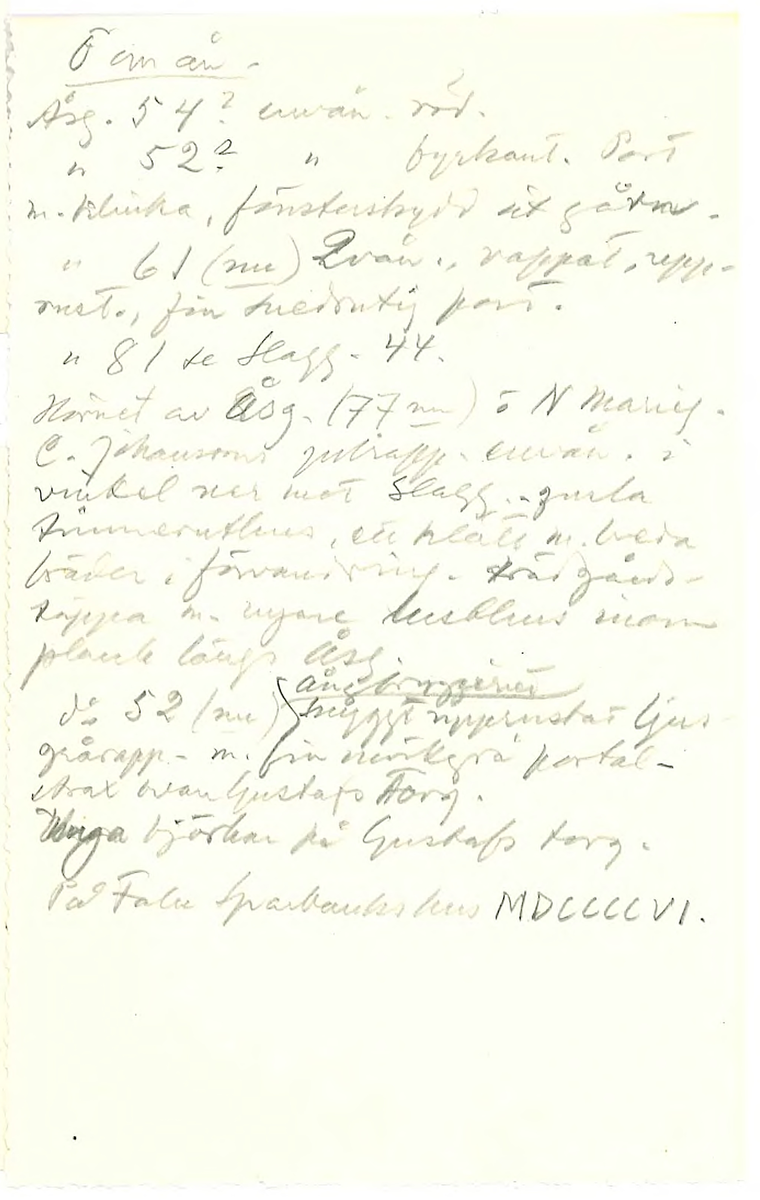 Ö om ån -
Åsg. 54? envån. röd.
" 52? " byrkant. Port
m. klinka, fönsterskydd åt gården.
" 61 (nu) 2vån., rappat, upp-
rust., fin snedrutig port.
" 81 se Slagg. 44.
Hörnet av Åsg. (77 nu) o N Marieg.
C. Johansons putsrapp. envån. i
vinkel ner mot Slagg. - gamla
timmeruthus, ett klätt m. breda
bräder i förvandring. Trädgårds-
täppa m. nyare lusthus inom
plank längs Åsg.
ångbryggeriet
do 52 (nu) snyggt upprustat ljus-
grårapp. m. fin mörkgrå portal -
strax ovan Gustafs Torg.
Unga björkar på Gustafs torg.
På Falu Sparbanks hus MDCCCCVI.